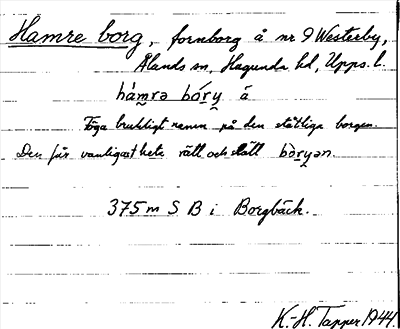 Hamre borg, fornborg å nr 9 Westerby,
Ålands sn, Hagunda hd, Upps. l.
hàmrə bór̨y á
Föga brukligt namn på den ståtliga borgen.
Den får vanligast heta rätt och slätt bòryən.
375 m S B i Borgbäck.
K.-H. Tapper 1944.